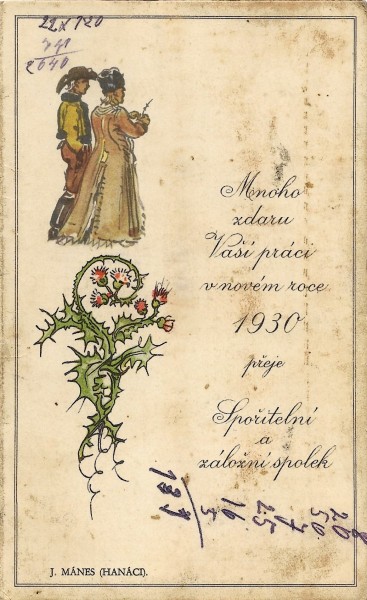 22x120
2640
Mnoho
zdaru
Vaší práci
v novém roce
1930
přeje
Spořitelní
a
záložní spolek
J. MÁNES (HANÁCI).